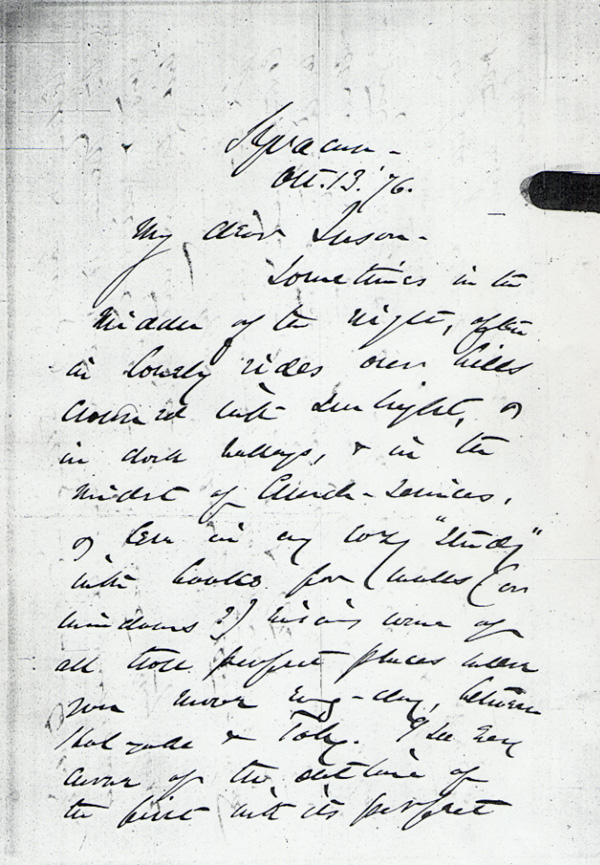 Syracuse -
Oct. 13. '76.
My dear Susan -
Sometimes in the
middle of the night, often
in lonely rides over hills
crowned with sunlight, or
in dark valleys, & in the
midst of Church-services,
or here in my cozy "Study"
with books for walls (or
windows?) visions come of
all those perfect places where
you move every-day, between
Holyoke & Toby. I see every
curve of the outline of
the first with its perfect